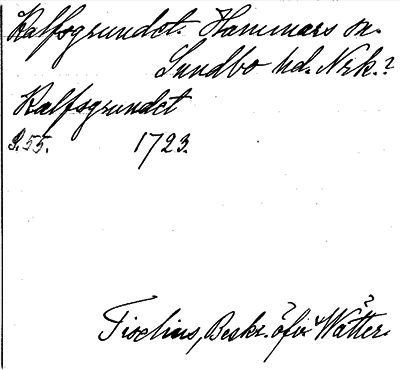 Kalfsgrundet. Hammars sn.
Sundbo hd. Nrk.?
Kalfsgrundet
S. 55. 1723.
Tiselius, Beskr. öfver Wätter.